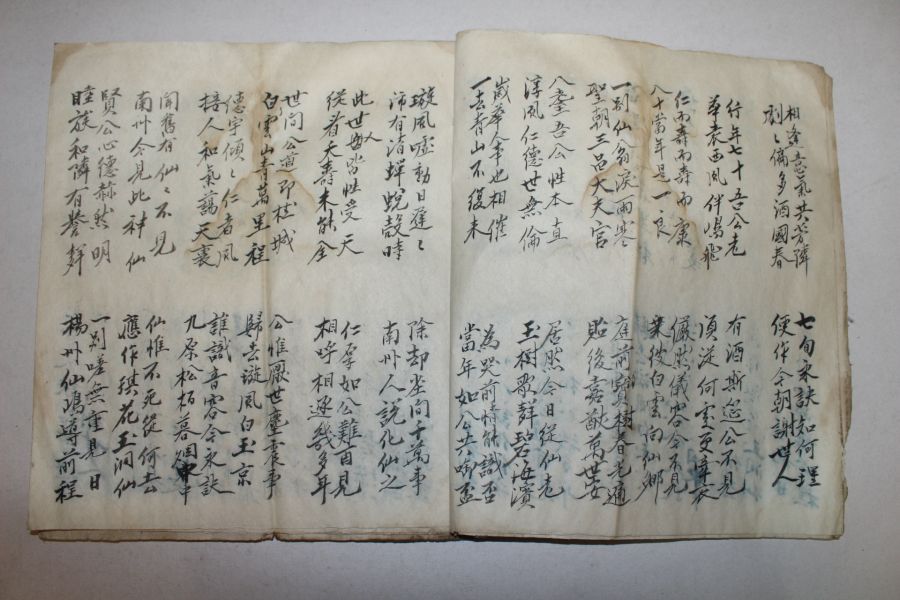 相逢意氣共芳隣
剩〻偏多酒國春
七旬永訣如何理
便作今朝謝世人
行年七十五公老
華表西風伴鳴飛
有酒斯筵公不見
須從何處更牽衣
仁而壽而壽而康
八十當年是一良
儼然儀容今不見
乘彼白雲向仙鄕
一別仙翁淚雨寒
聖朝三品大夫官
庭前寶樹春光適
貽後嘉猷萬世安
八耋吾公性本直
淳風仁德世無倫
居然今日從仙老
玉樹歌聲碧海濱
歲華人事也相催
一去靑山不復來
為哭前情能識否
當年如公共啣盃
璇風噓動日蘧〻
沛有淸蟬蛻殼時
除却坐向千萬事
南州人說化仙之
此世皆性受天
從看天壽未能全
仁厚如公難百見
相呼相逐幾多年
世間公道即桂城
白雲山靑萬里程
公惟厭世塵寰事
歸去璇風白玉京
德宇傾〻仁者風
接人和氣藹天裏
誰識音容今永訣
九原松栢暮烟中
聞舊有仙〻不見
南州今見此神仙
仙惟不死從何去
應作琪花玉洞仙
賢公心德赫然明
睦族和隣有譽聲
一別嗟無重見日
楊州仙嶋導前程